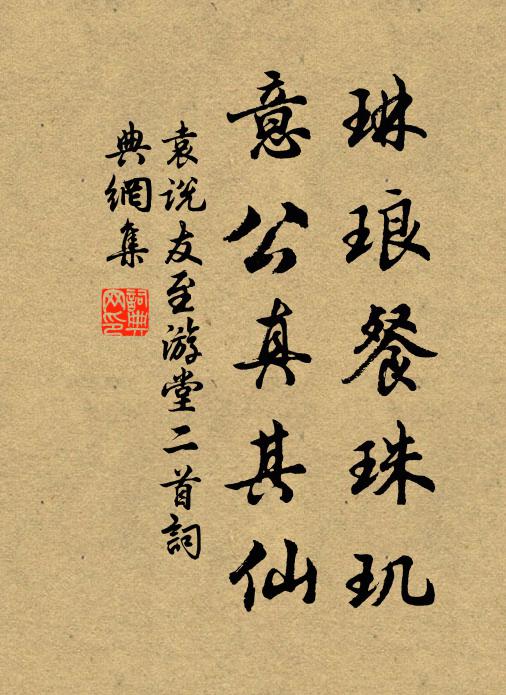 琳琅餐珠玑
意公真其仙
袁说友至游堂二首詞
典網集
詞典网印